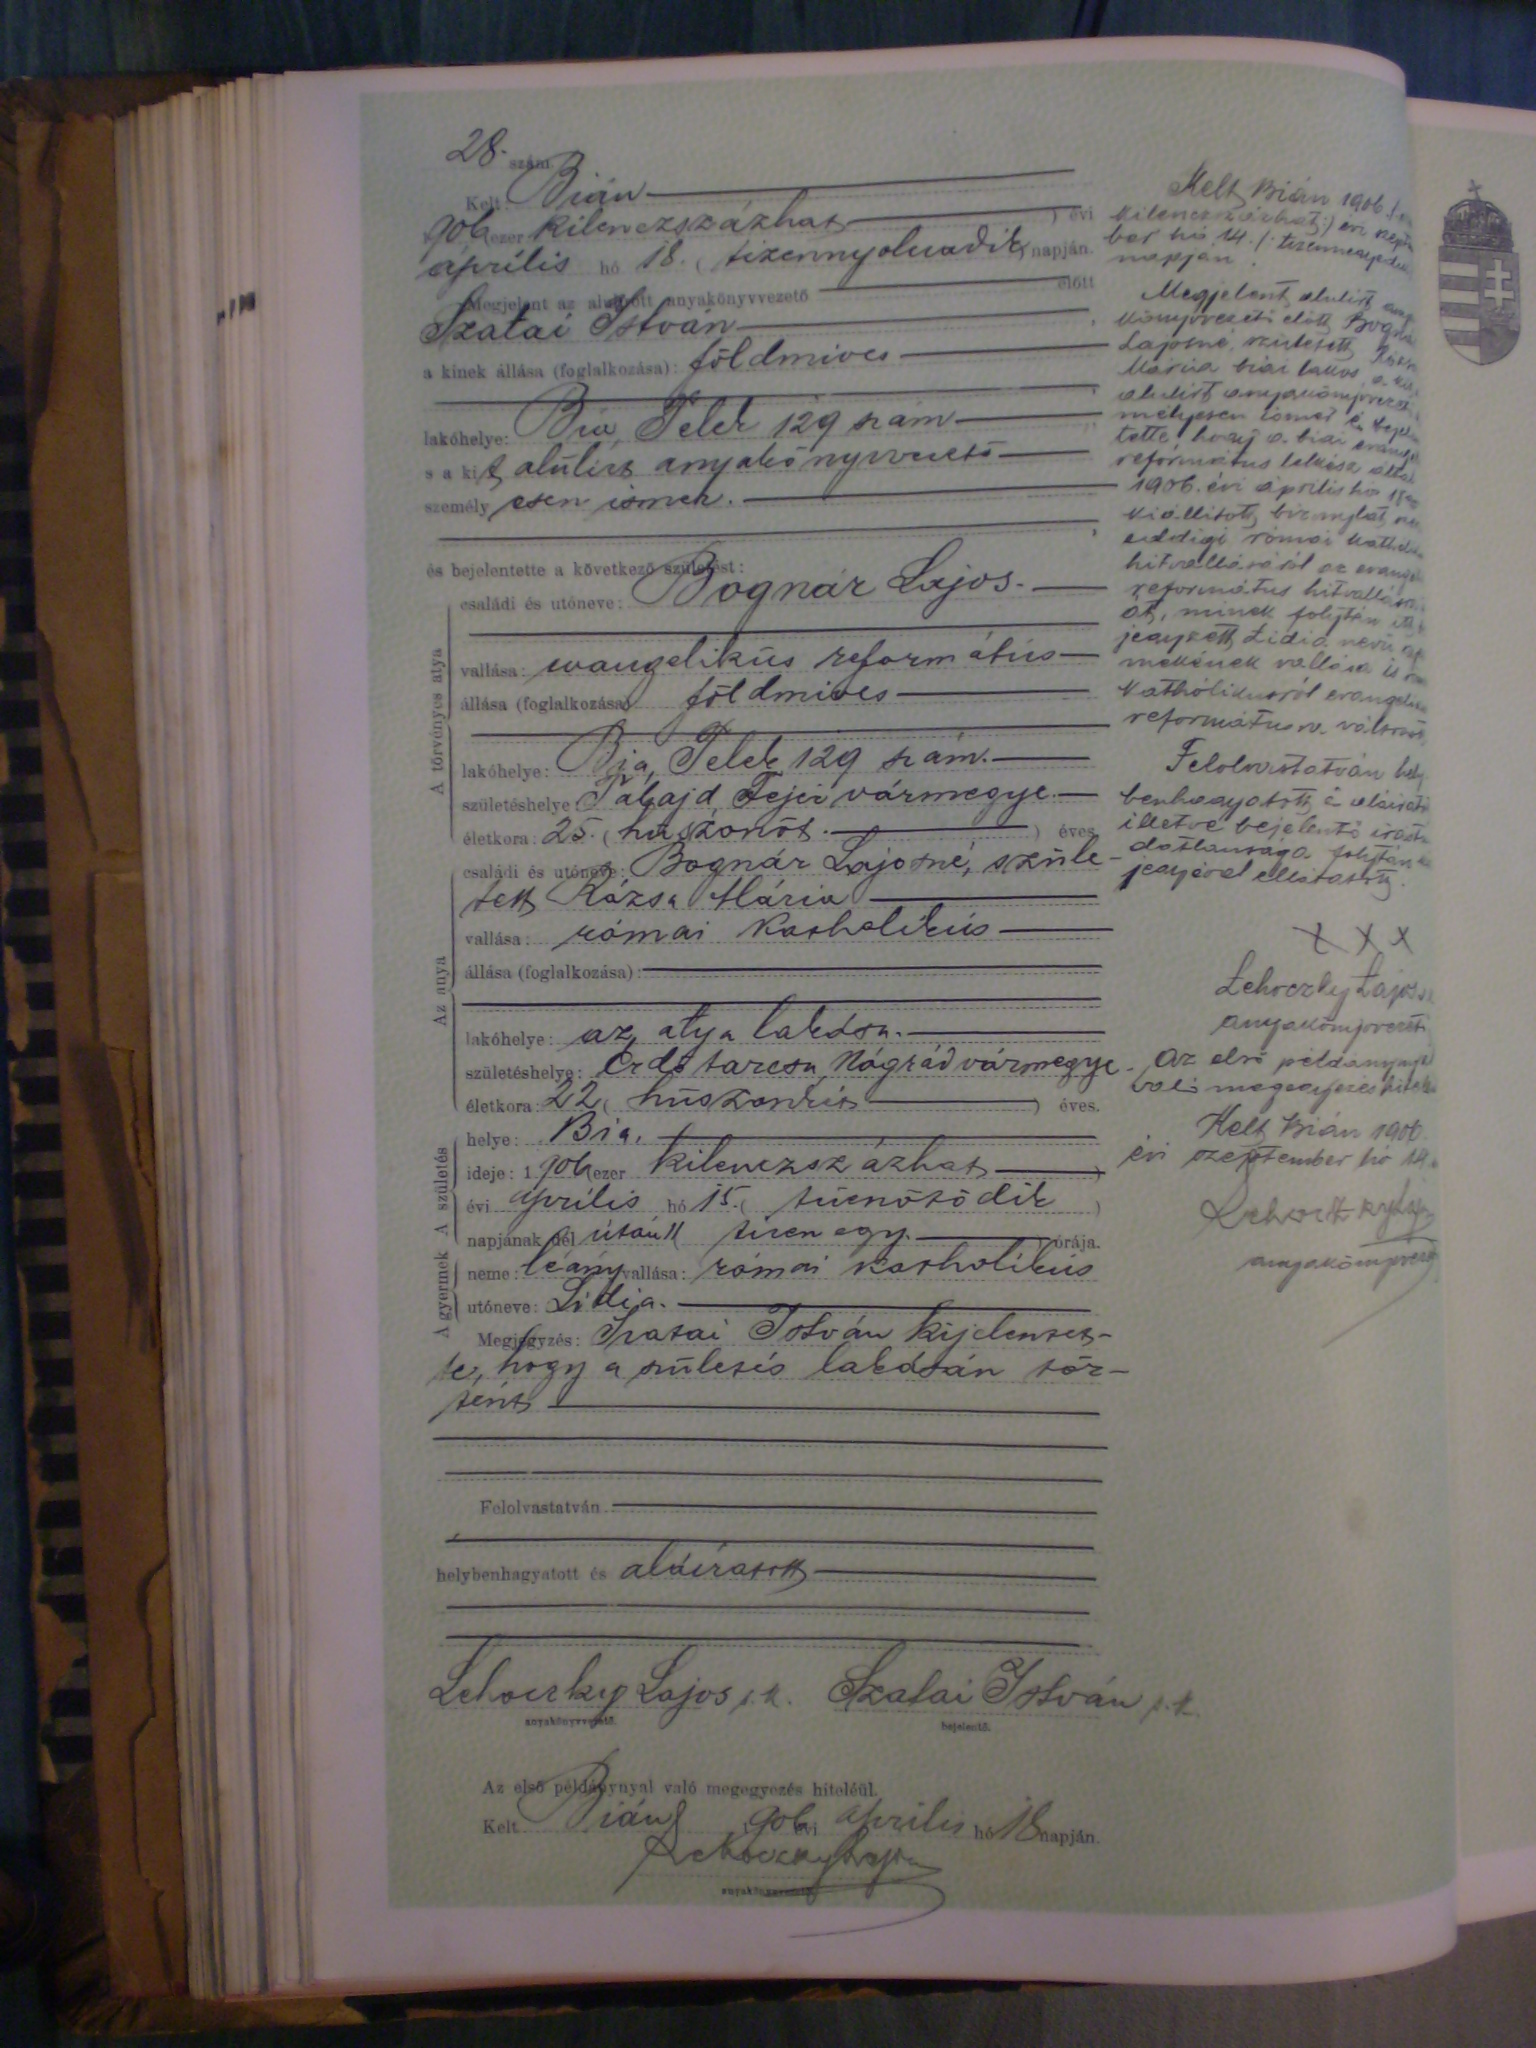 28. szám
Kelt: Bián
906 ezer kilenczszázhat ) évi
április hó 18. ( tizennyolcadik ) napján.
Megjelent az alulirott anyakönyvvezető előtt
Szalai István
a kinek állása (foglalkozása): földmives
lakóhelye: Bia, Telek 129 szám
s a kit alulirt anyakönyvvezető
személyesen ismer.
és bejelentette a következő születést:
A törvényes atya
családi és utóneve: Bognár Lajos.
vallása: evangelikus református
állása (foglalkozása) földmives
lakóhelye: Bia, Telek 129 szám.
születéshelye Tabajd, Fejér vármegye.
életkora: 25. ( huszonöt. ) éves.
Az anya
családi és utóneve: Bognár Lajosné, szüle-
tett Rózsa Mária
vallása: római katholikus
állása (foglalkozása):
lakóhelye: az atya lakása.
születéshelye: Erdőtarcsa, Nógrád vármegye.
életkora: 22 ( huszonkét ) éves.
A születés
helye: Bia.
ideje: 1 906 ezer kilenczszázhat )
évi április hó 15. ( tizenötödik )
napjának dél után 11 tizenegy. órája.
A gyermek
neme: leány vallása: római katholikus
utóneve: Lidia.
Megjegyzés: Szalai István kijelentet-
te, hogy a születés lakásán tör-
tént
Felolvastatván
helybenhagyatott és aláíratott
Lehoczky Lajos s.k. Szalai István s.k.
anyakönyvvezető. bejelentő.
Az első példánynyal való megegyezés hiteléül.
Kelt Bián 906 évi április hó 18 napján.
Lehoczky Lajos
anyakönyvvezető.
Kelt Bián 1906
kilenczszázhat:) évi
ber hó 14. (: tizennegyedik
napján.
Megjelent alulirt
könyvvezető előtt
Lajosné, született
Mária biai lakos, a kit
alulirt anyakönyvvezető
mélyesen ismer és
tette, hogy a biai
református lelkész által
1906. évi április hó
kiállitott bizonylat
eddigi római
hitvallásáról az
református
át, minek folytán
jegyzett Lidia nevü
mekének vallása is
katholikusról
református
Felolvastatván
benhagyatott és
illetve bejelentő
datlansága folytán
jegyével elláttatott.
x x x
Lehoczky Lajos
anyakönyvvezető
Az első
való megegyezés
Kelt Bián 1906
évi szeptember hó 14
Lehoczky Lajos